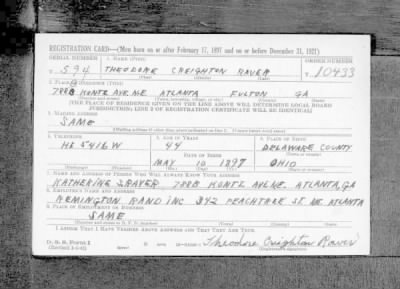 REGISTRATION CARD—(Men born on or after February 17, 1897 and on or before December 31, 1921)
SERIAL NUMBER 1. NAME (Print) ORDER NUMBER
T 594 THEODORE CREIGHTON RAVER T 10433
(First) (Middle) (Last)
2. PLACE OF RESIDENCE (Print)
ATLANTA FULTON GA
[THE PLACE OF RESIDENCE GIVEN ON THE LINE ABOVE WILL DETERMINE LOCAL BOARD
JURISDICTION; LINE 2 OF REGISTRATION CERTIFICATE WILL BE IDENTICAL]
3. MAILING ADDRESS
SAME
[Mailing address if other than place indicated on line 2. If same insert word same]
4. TELEPHONE 5. AGE IN YEARS 6. PLACE OF BIRTH
5416 W 44 DELAWARE COUNTY
DATE OF BIRTH (Town or county)
MAY 10 1897 OHIO
(Exchange) (Number) (Mo.) (Day) (Yr.) (State or country)
7. NAME AND ADDRESS OF PERSON WHO WILL ALWAYS KNOW YOUR ADDRESS
KATHERINE S. RAVER ATLANTA, GA
8. EMPLOYER'S NAME AND ADDRESS
REMINGTON RAND INC 342 PEACHTREE ST. NE. ATLANTA
9. PLACE OF EMPLOYMENT OR BUSINESS
SAME
I AFFIRM THAT I HAVE VERIFIED ABOVE ANSWERS AND THAT THEY ARE TRUE.
D. S. S. Form 1 Theodore Creighton Raver